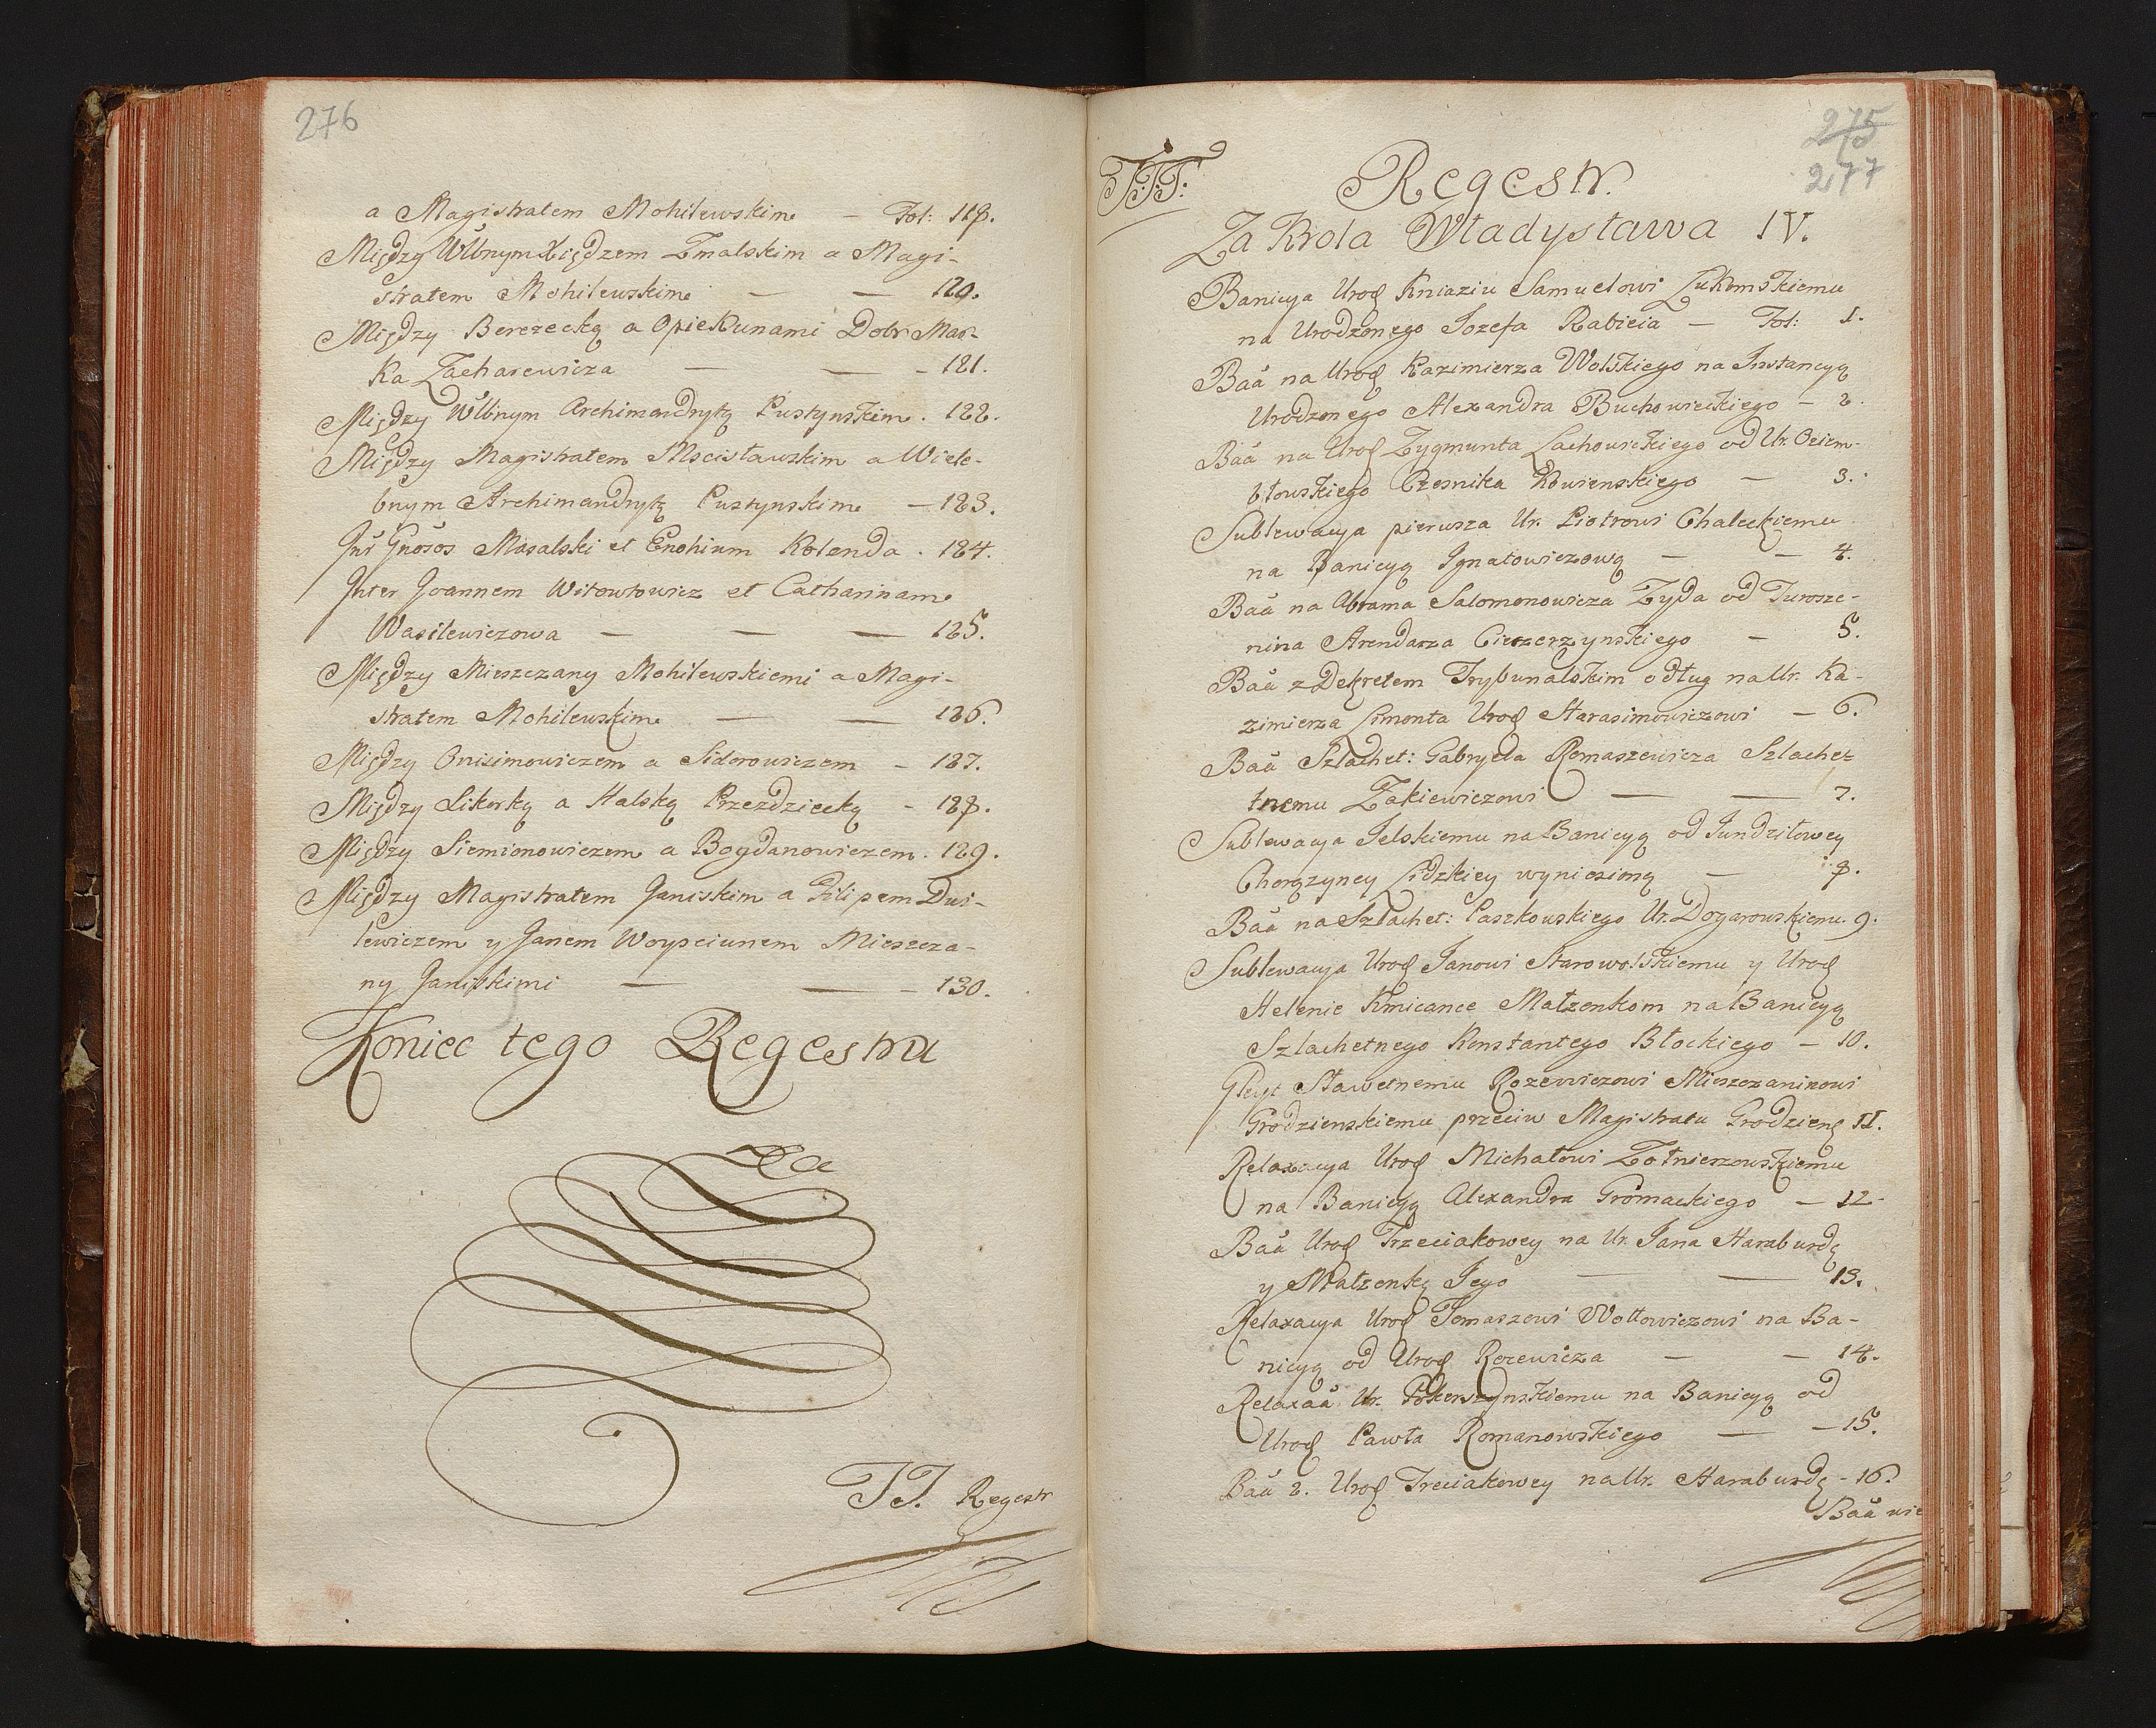 276
a Magistratem Mohilewskim — Fol: 118.
Między Wlbnym Xiędzem Zmalskim a Magi-
stratem Mohilewskim — — 120.
Między Berezecką a Opiekunami Dobr Mar-
ka Zacharewicza — — - 121.
Między Wlbnym Archimandrytą Pustynskim. 122.
Między Magistratem Mscisławskim a Wiele-
bnym Archimandrytą Pustynskim — 123.
Masalski et Enohium Kolenda. 124.
Inter Joannem Witowtowicz et Catharinam
Wasilewiczowa — — — 125.
Między Mieszczany Mohilewskiemi a Magi-
stratem Mohilewskim — — 126.
Między Onisimowiczem a Sidorowiczem - 127.
Między Sikorką a Halską Przezdziecką - 128.
Między Siemionowiczem a Bogdanowiczem. 129.
Między Magistratem Janiskim a Filipem Dwi-
lewiczem y Janem Woysciunem Mieszcza-
ny Janiskimi — — - 130.
Koniec tego Regestru
TT. Regestr
275
277
TTT.
Regestr.
Za Krola Władysława IV.
Banicya Urod Kniaziu Samuelowi Łukomskiemu
na Urodzonego Jozefa Rabieia — Fol: 1.
Baa na Urod Kazimierza Wolskiego na Instancyą
Urodzonego Alexandra Buchowieckiego - 2.
Baa na Urod Zygmunta Lachowickiego od Ur. Oziem-
błowskiego Czesnika Kowienskiego — 3.
Sublewacya pierwsza Ur. Piotrowi Chaleckiemu
na Banicyą Ignatowiczową — — 4.
Baa na Abrama Salomonowicza Żyda od Turosze-
nina Arendarza Cieszerzynskiego — 5.
Baa z Dekretem Trybunalskim o dług na Ur. Ka-
zimierza Limonta Urod Harasimowiczowi — 6.
Baa Szlachet: Gabryela Romaszewicza Szlachet-
tnemu Żakiewiczowi — — 7.
Sublewacya Jelskiemu na Banicyą od Jundziłowey
Chorązyney Lidzkiey wyniesioną — 8.
Baa na Szlachet: Paszkowskiego Ur. Dogarowskiemu. 9.
Sublewacya Urod Janowi Starowolskiemu y Urod
Helenie Kmicance Małzenkom na Banicyą
Szlachetnego Konstantego Błockiego — 10.
Gleyt Sławetnemu Rozewiczowi Mieszczaninowi
Grodzienskiemu przeciw Magistratu Grodzien 11.
Relaxacya Urod Michałowi Zołnierzowskiemu
na Banicyą Alexandra Gromackiego — 12-
Baa Urod Trzeciakowey na Ur. Jana Haraburdę
y Małzenkę Jego — — 13.
Relaxacya Urod Tomaszowi Wołłowiczowi na Ba-
nicyą od Urod Rozewicza — — 14.
Relaxaa Ur. Pokerszynskiemu na Banicyą od
Urod Pawła Romanowskiego — — 15.
Baa 2. Urod Treciakowey na Ur. Haraburdę - 16.
Baa wie